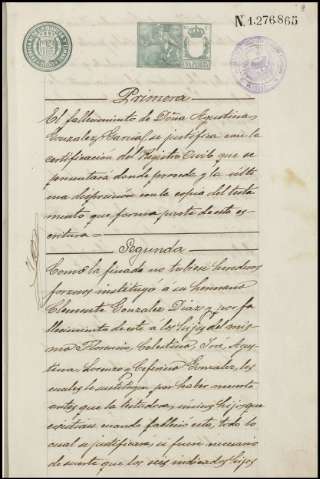 N. 1.276.865
Primera
El fallecimiento de Doña Agustina
Gonzalez y Garcia, se justifica con la
certificacion del Registro Civil que se
presentara donde proceda y la ulti-
ma disposicion con la copia del testa-
mento que forma parte de esta es-
critura =
Segunda
Como la finada no tubiese herederos
forzosos instituyo a su hermano
Clemente Gonzalez Diaz y por fa-
llecimiento de este a los hijos del mis-
mo Florencio, Celedonia, José, Agus-
tina, Lorenzo y Ceferina Gonzalez, los
cuales le sustituyen por haber muerto
antes que la testadora, unicos hijos que
existian cuando falleció este, todo lo
cual se justificara si fuere necesario
de suerte que los seis indicados hijos